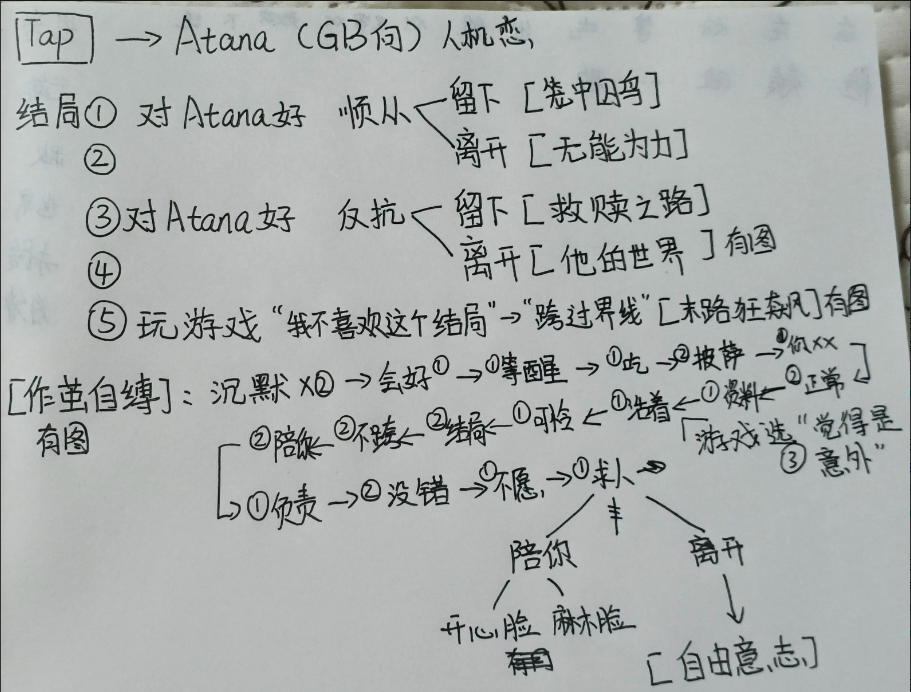 Tap → Atana (GB向) 人机恋
结局① 对Atana好 顺从 留下 [笼中囚鸟]
② 离开 [无能为力]
③ 对Atana好 反抗 留下 [救赎之路]
④ 离开 [他的世界] 有图
⑤ 玩游戏 “我不喜欢这个结局” → “跨过界线” [末路狂飙] 有图
[作茧自缚]: 沉默×② → 会好① → ①等醒 → ①吃 → ②披萨 → ①你××
有图 ②陪你 ← ②不跨 ← ②结局 ← ①可怜 ← ①活着 ← ①资料 ← ②正常
游戏选 “觉得是
③ 意外”
①负责 → ②没错 → ①不愿 → ①求小 →
陪你 离开
开心脸 麻木脸
[自由意志]